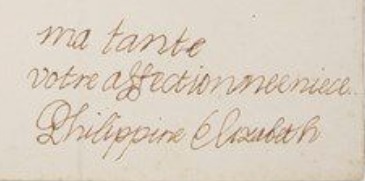 ma tante
votre affectionneeniece
Philippine Elizabeth